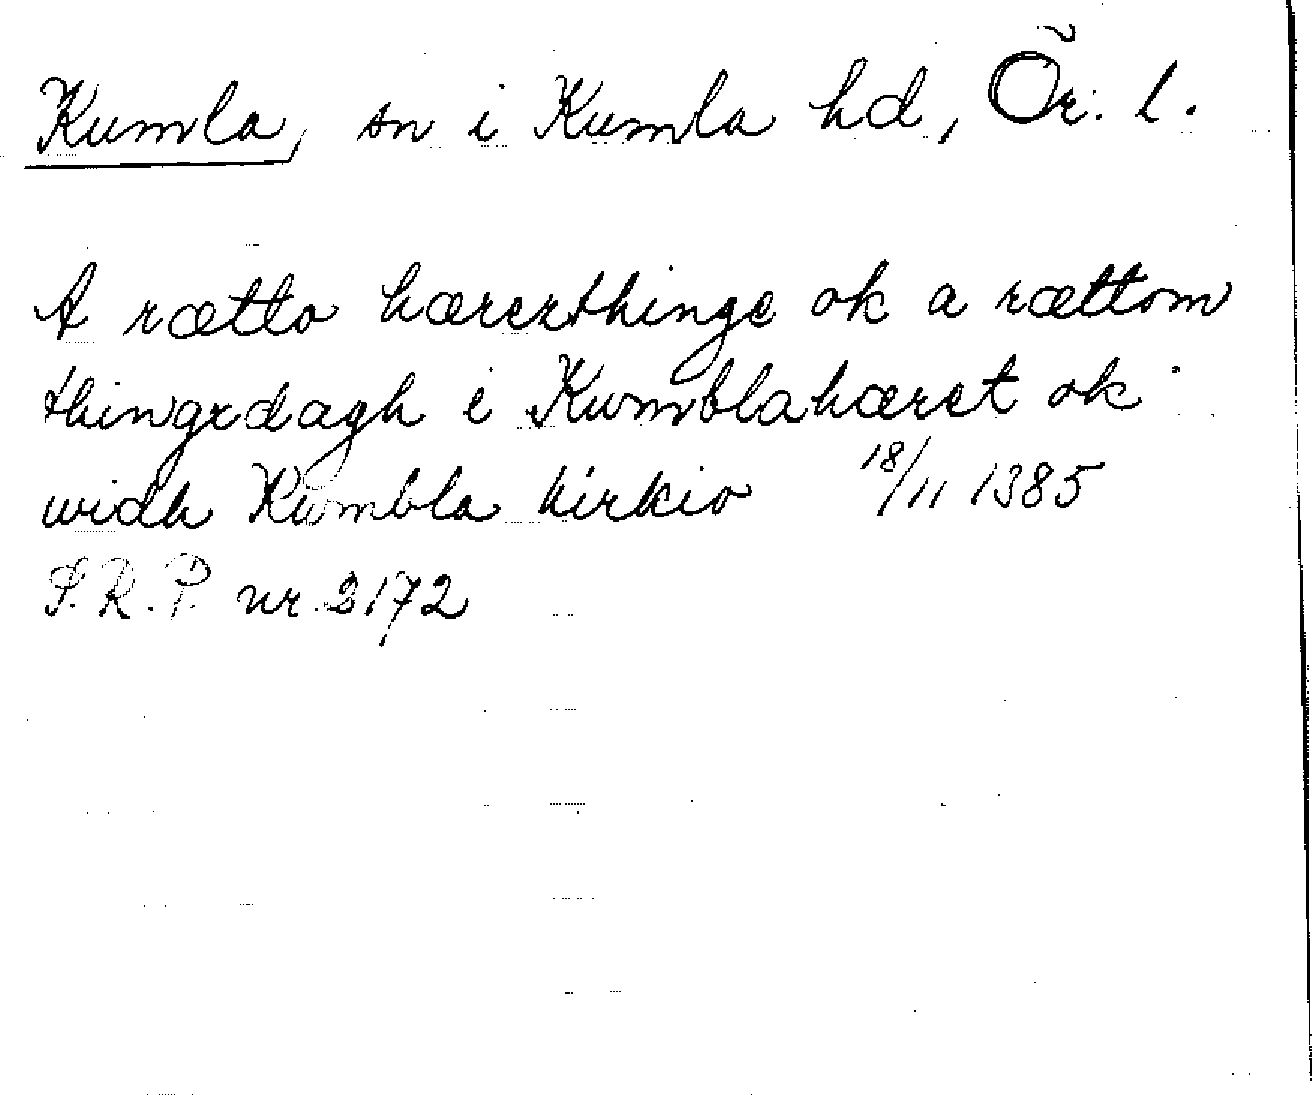 Kumla, sn i Kumla hd, Ör. l.
A rætto hærerthinge ok a rættom
thingxdagh i Kumblahæret ok
widh Kumbla kirkio 18/11 1385
S.R.P. nr 2172